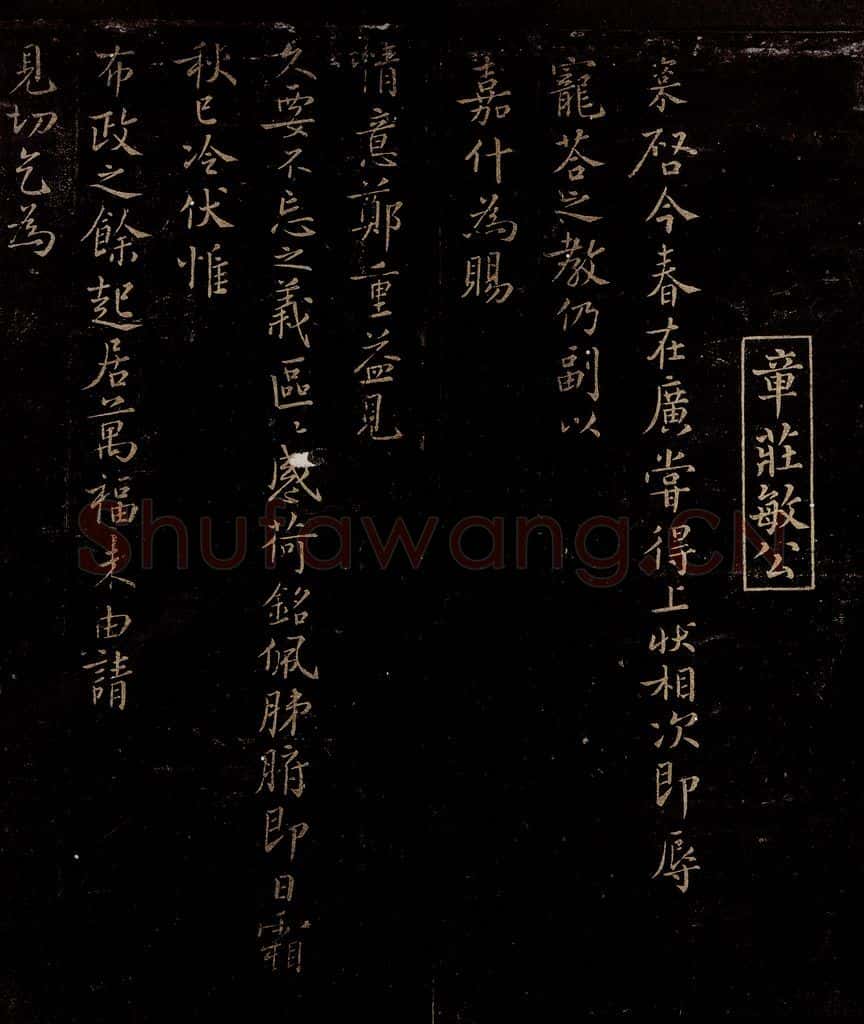 章莊敏公
楶啓今春在廣嘗得上狀相次即辱
寵荅之教仍副以
嘉什為賜
情意鄭重益見
久要不忘之義區〻感荷銘佩肺腑即日霜
秋已冷伏惟
布政之餘起居萬福未由請
見切乞為
Shufawang.CN